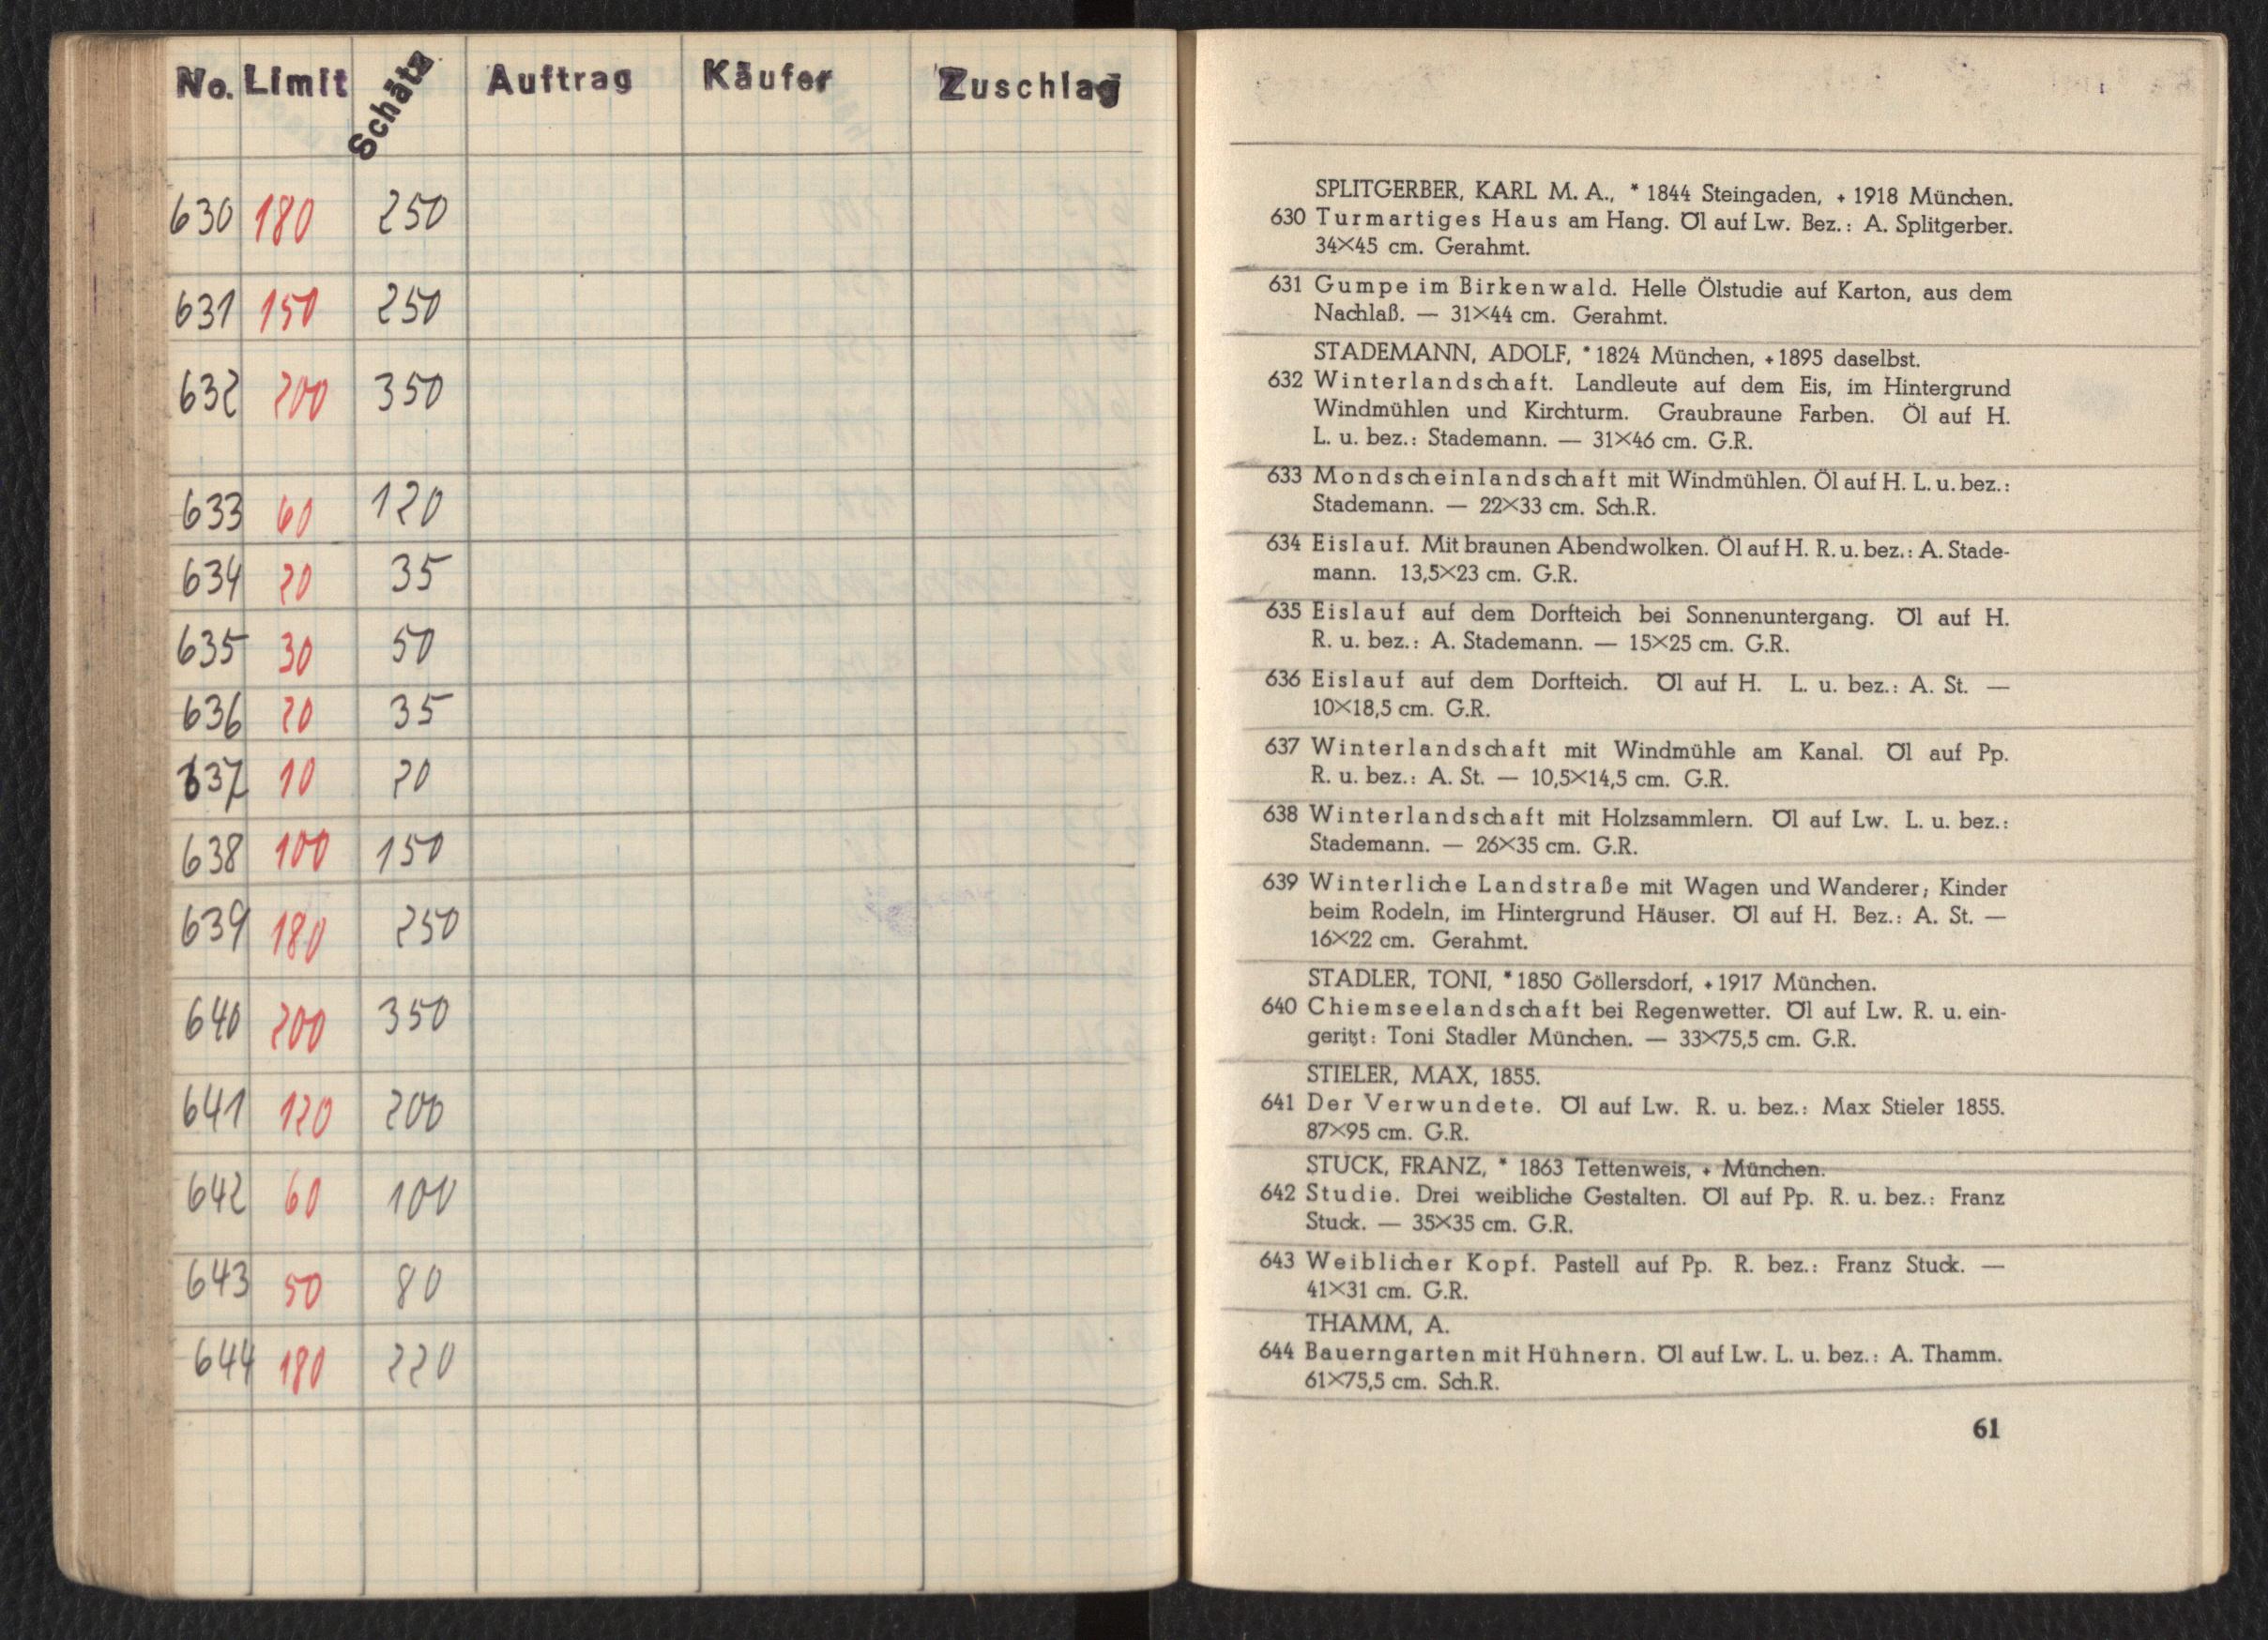 No. Limit Schätz Auftrag Käufer Zuschlag
630 180 250
631 150 250
632 200 350
633 60 120
634 20 35
635 30 50
636 20 35
637 10 20
638 100 150
639 180 250
640 200 350
641 120 200
642 60 100
643 50 80
644 180 220
SPLITGERBER, KARL M. A., * 1844 Steingaden, + 1918 München.
630 Turmartiges Haus am Hang. Öl auf Lw. Bez.: A. Splitgerber.
34×45 cm. Gerahmt.
631 Gumpe im Birkenwald. Helle Ölstudie auf Karton, aus dem
Nachlaß. — 31×44 cm. Gerahmt.
STADEMANN, ADOLF, * 1824 München, + 1895 daselbst.
632 Winterlandschaft. Landleute auf dem Eis, im Hintergrund
Windmühlen und Kirchturm. Graubraune Farben. Öl auf H.
L. u. bez.: Stademann. — 31×46 cm. G.R.
633 Mondscheinlandschaft mit Windmühlen. Öl auf H. L. u. bez.:
Stademann. — 22×33 cm. Sch.R.
634 Eislauf. Mit braunen Abendwolken. Öl auf H. R. u. bez.: A. Stade-
mann. 13,5×23 cm. G.R.
635 Eislauf auf dem Dorfteich bei Sonnenuntergang. Öl auf H.
R. u. bez.: A. Stademann. — 15×25 cm. G.R.
636 Eislauf auf dem Dorfteich. Öl auf H. L. u. bez.: A. St. —
10×18,5 cm. G.R.
637 Winterlandschaft mit Windmühle am Kanal. Öl auf Pp.
R. u. bez.: A. St. — 10,5×14,5 cm. G.R.
638 Winterlandschaft mit Holzsammlern. Öl auf Lw. L. u. bez.:
Stademann. — 26×35 cm. G.R.
639 Winterliche Landstraße mit Wagen und Wanderer; Kinder
beim Rodeln, im Hintergrund Häuser. Öl auf H. Bez.: A. St. —
16×22 cm. Gerahmt.
STADLER, TONI, * 1850 Göllersdorf, + 1917 München.
640 Chiemseelandschaft bei Regenwetter. Öl auf Lw. R. u. ein-
geritzt: Toni Stadler München. — 33×75,5 cm. G.R.
STIELER, MAX, 1855.
641 Der Verwundete. Öl auf Lw. R. u. bez.: Max Stieler 1855.
87×95 cm. G.R.
STUCK, FRANZ, * 1863 Tettenweis, + München.
642 Studie. Drei weibliche Gestalten. Öl auf Pp. R. u. bez.: Franz
Stuck. — 35×35 cm. G.R.
643 Weiblicher Kopf. Pastell auf Pp. R. bez.: Franz Stuck. —
41×31 cm. G.R.
THAMM, A.
644 Bauerngarten mit Hühnern. Öl auf Lw. L. u. bez.: A. Thamm.
61×75,5 cm. Sch.R.
61